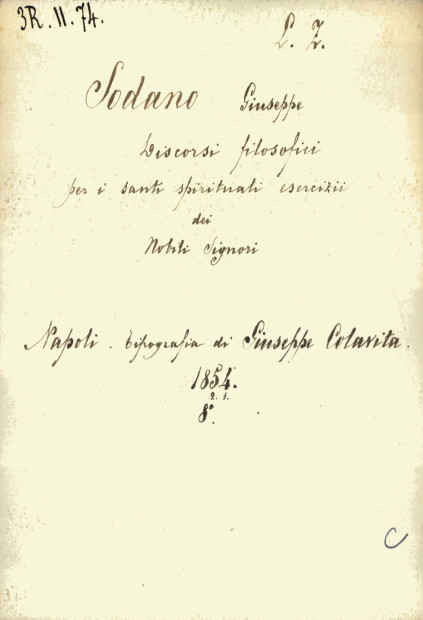 3R.11.74.
L. Z.
Sodano Giuseppe
Discorsi filosofici
per i santi spirituali esercizii
dei
Nobili Signori
Napoli. tipografia di Giuseppe Colavita.
1854.
2. 1.
8°.
C